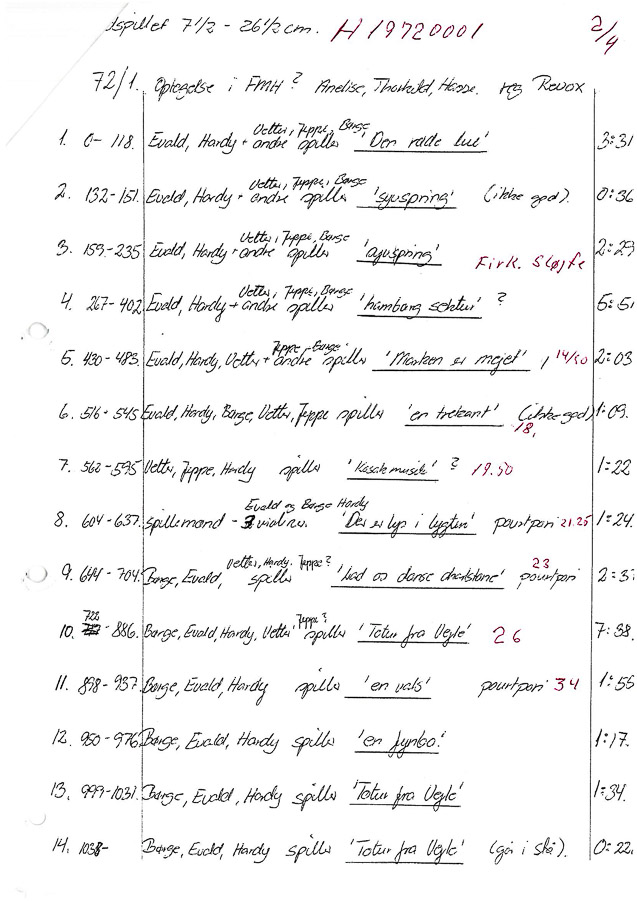 dspillet 7½ - 26½ cm. H19720001 2/4
72/1. Optagelse i FMH? Anelise, Thorkild, Hasse. reg Revox
Vetter, Jeppe, Børge
1. 0-118. Evald, Hardy + andre spiller 'Den røde lue' 3:31
Vetter, Jeppe, Børge
2. 132-151. Evald, Hardy + andre spiller 'syvspring' (ikke god). 0:36
Vetter, Jeppe, Børge
3. 159-235. Evald, Hardy + andre spiller 'syvspring' Firk. Sløjfe 2:29
Vetter, Jeppe, Børge
4. 267-402. Evald, Hardy + andre spiller 'hamborg sekstur' ? 5:51
Jeppe, Børge
5. 430-483. Evald, Hardy, Vetter + andre spiller 'Marken er mejet' 14/50 2:03
6. 516-545 Evald, Hardy, Børge, Vetter, Jeppe spiller 'en trekant' (ikke god) 1:09.
18,
7. 562-595 Vetter, Jeppe, Hardy spiller ? 19.50 1:22
Evald og Børge Hardy
8. 604-637. Spillemænd - 3 violiner. 'Der er lys i lygten' pourtpori 21.25 1:24.
Vetter, Hardy. Jeppe? 23
9. 644-704. Børge, Evald, spiller 'Lad os danse' pourtpori 2:3
723 Jeppe?
10. -886. Børge, Evald, Hardy, Vetter spiller 'Totur fra Vejle' 26 7:38.
11. 898-937. Børge, Evald, Hardy spiller 'en vals' pourtpori 34 1:55
12. 950-976. Børge, Evald, Hardy spiller 'en fynbo.' 1:17.
13. 999-1031. Børge, Evald, Hardy spiller 'Totur fra Vejle' 1:34.
14. 1038- Børge, Evald, Hardy spiller 'Totur fra Vejle' (går i stå). 0:22.